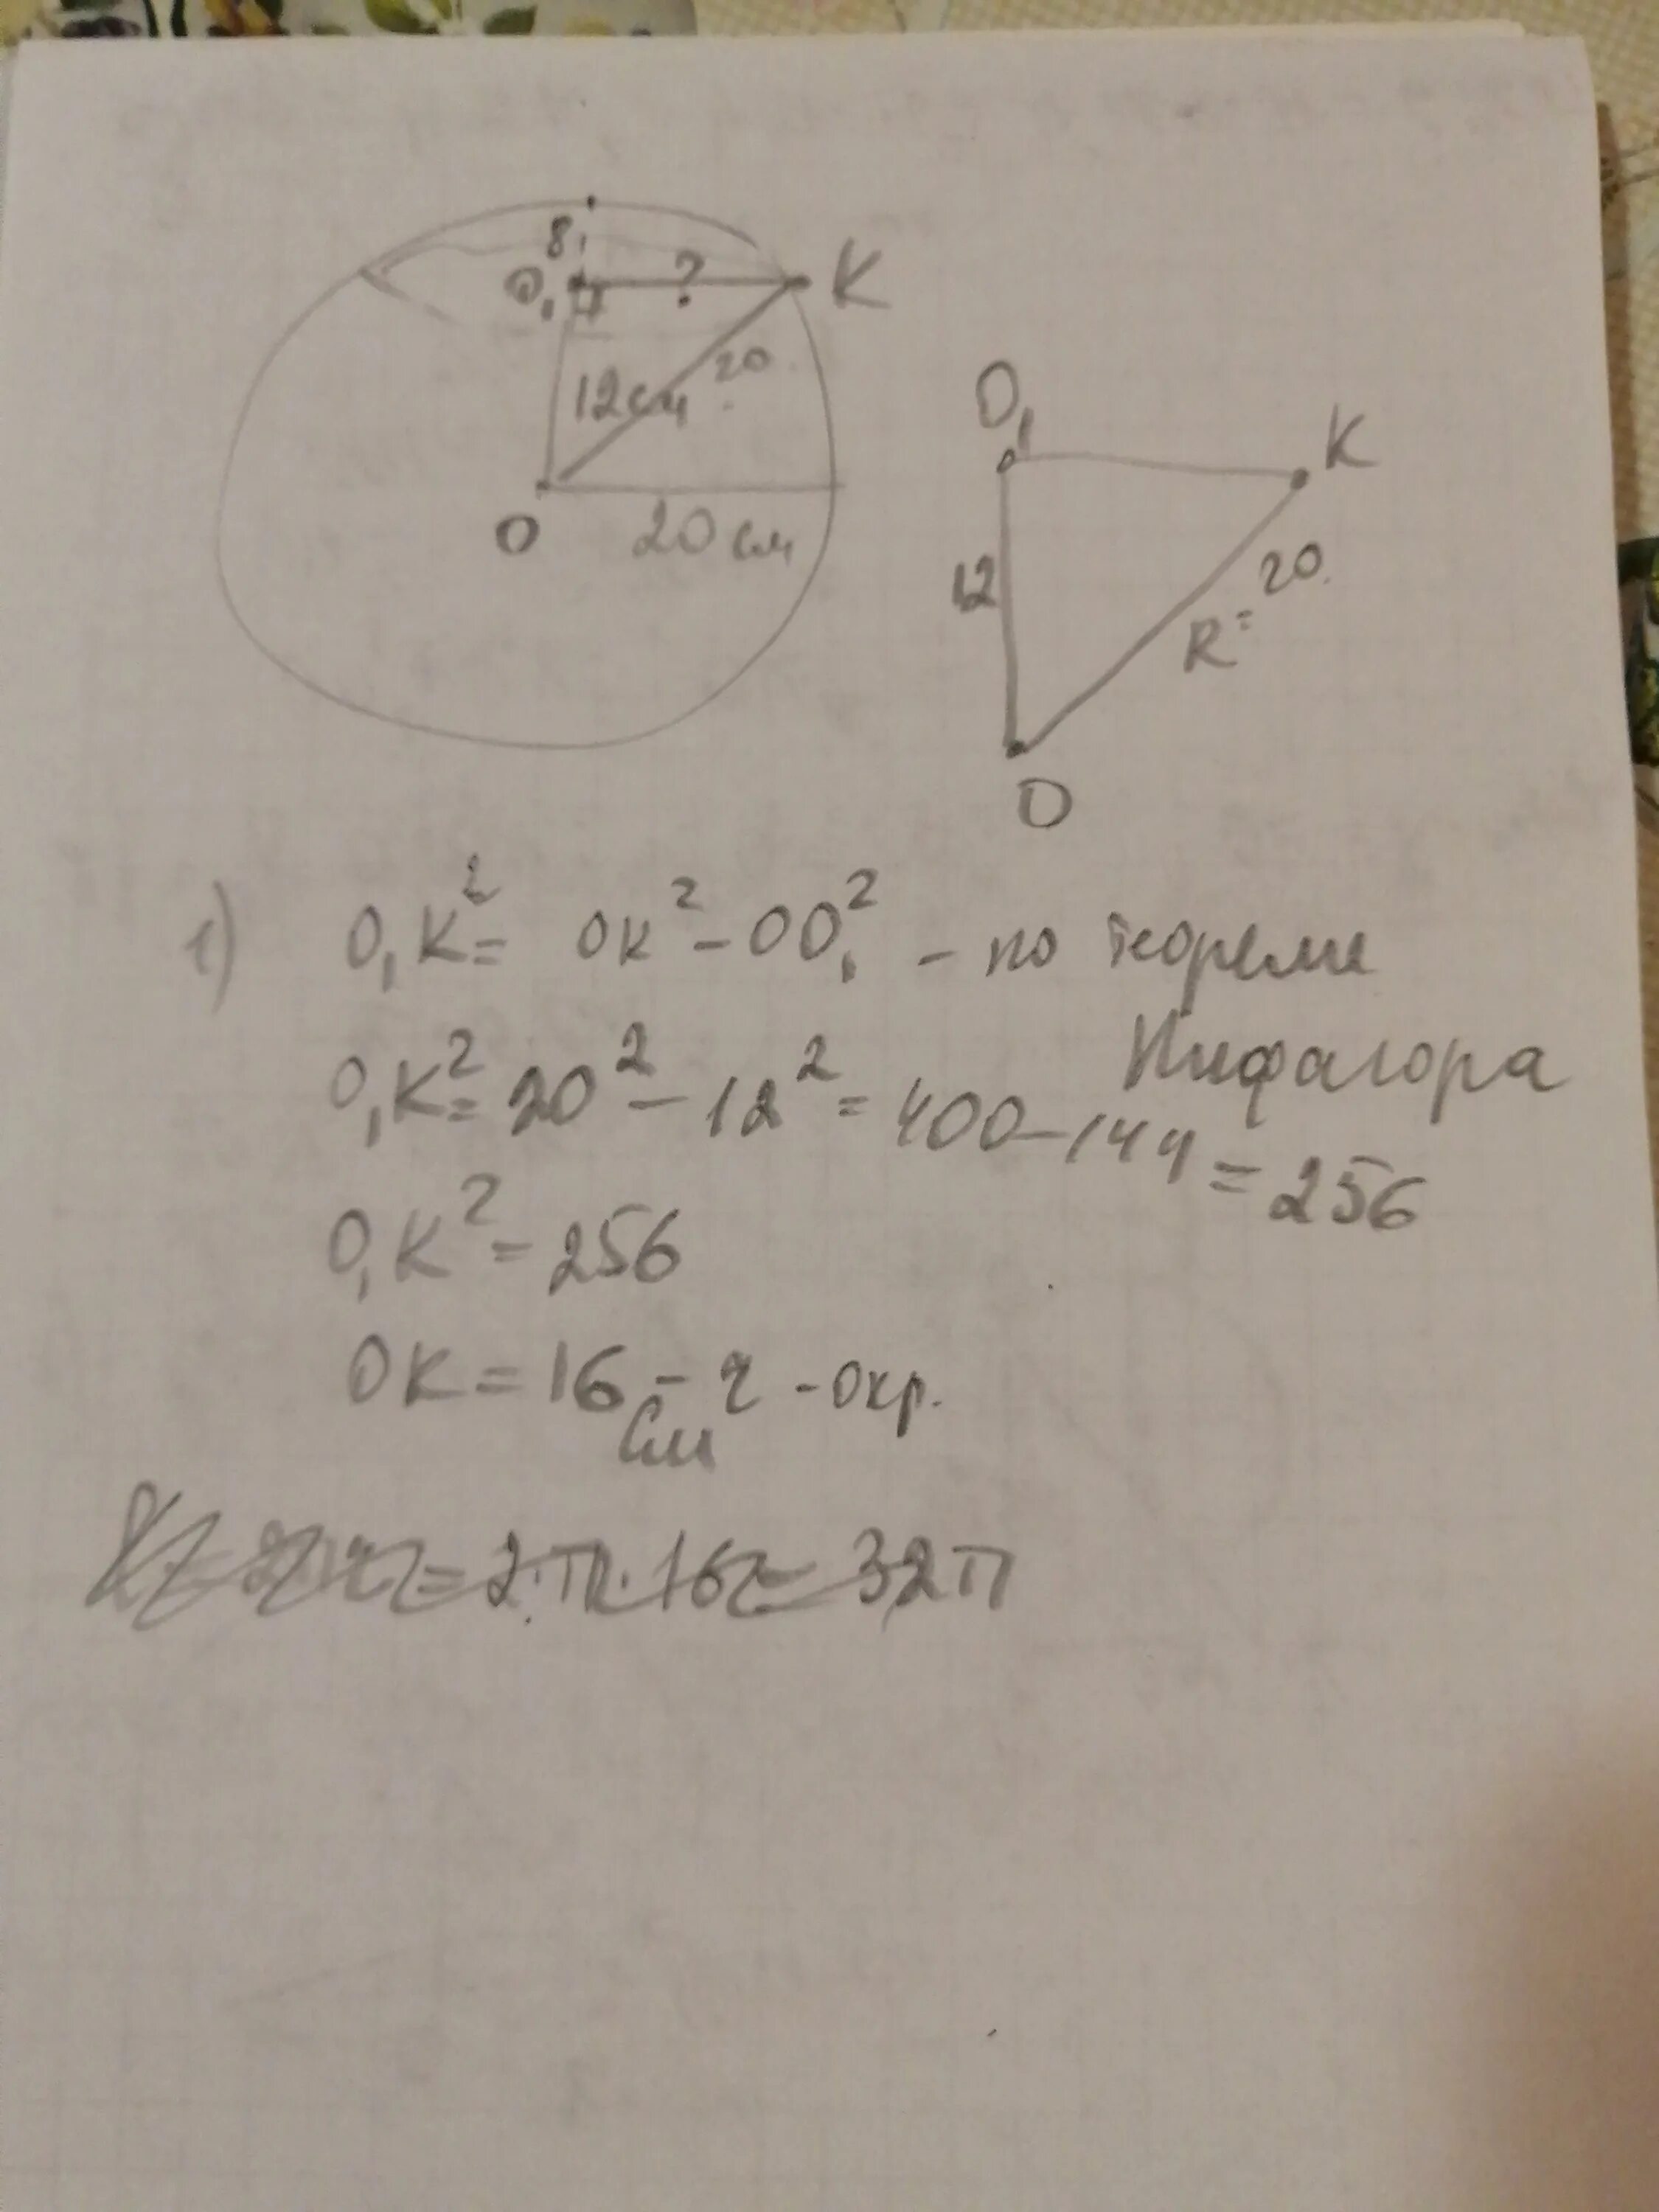 8
O₁ ? K
20
12см
O 20 см
O₁
K
12
20
R=
O
1) O₁K²= OK²-OO₁² - по теореме
Пифагора
O₁K²=20²-12²=400-144=256
O₁K²=256
OK=16 см - r - окр.
=2·π·16= 32π